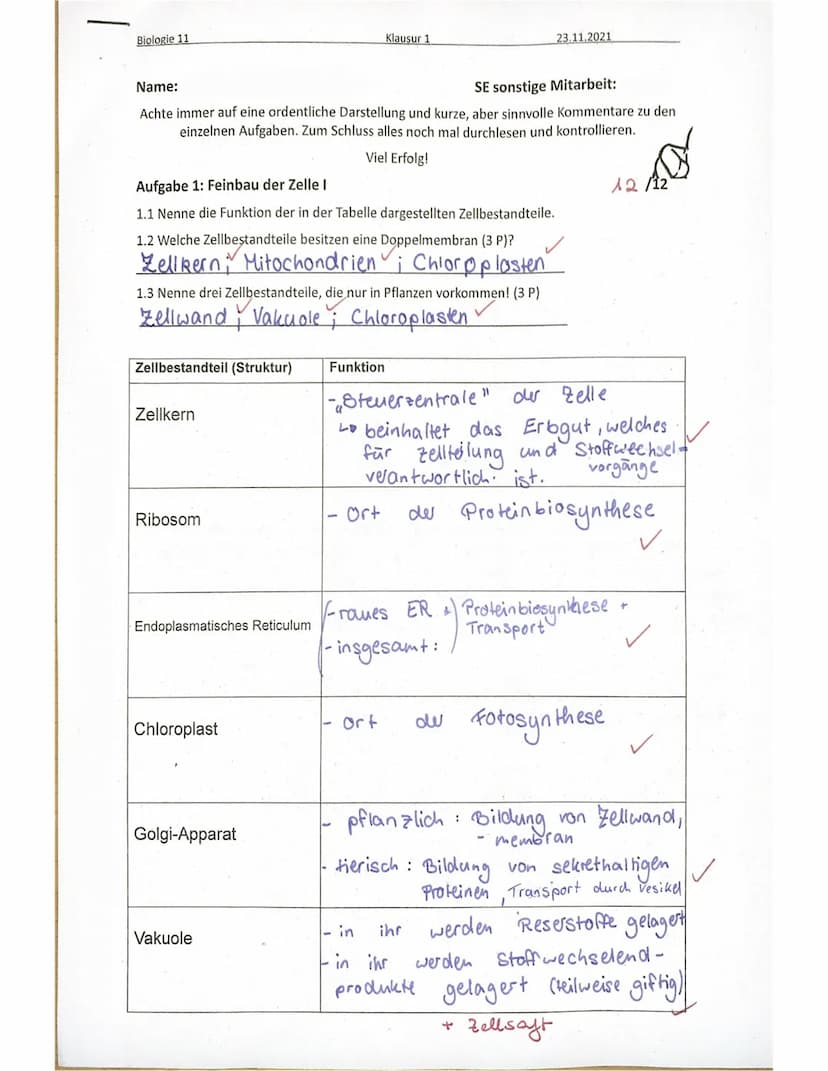 Biologie 11 Klausur 1 23.11.2021
Name: SE sonstige Mitarbeit:
Achte immer auf eine ordentliche Darstellung und kurze, aber sinnvolle Kommentare zu den
einzelnen Aufgaben. Zum Schluss alles noch mal durchlesen und kontrollieren.
Viel Erfolg!
Aufgabe 1: Feinbau der Zelle I 12 /12
1.1 Nenne die Funktion der in der Tabelle dargestellten Zellbestandteile.
1.2 Welche Zellbestandteile besitzen eine Doppelmembran (3 P)?
Zellkern; Mitochondrien; Chloroplasten
1.3 Nenne drei Zellbestandteile, die nur in Pflanzen vorkommen! (3 P)
Zellwand; Vakuole; Chloroplasten
Zellbestandteil (Struktur) Funktion
Zellkern
- „Steuerzentrale" der Zelle
↳ beinhaltet das Erbgut, welches
für Zellteilung und Stoffwechsel-
vorgänge
verantwortlich ist.
Ribosom
- Ort der Proteinbiosynthese
Endoplasmatisches Reticulum
- raues ER Proteinbiosynthese +
Transport
- insgesamt:
Chloroplast
- Ort der Fotosynthese
Golgi-Apparat
- pflanzlich: Bildung von Zellwand,
- membran
- tierisch: Bildung von sekrethaltigen
Proteinen, Transport durch Vesikel
Vakuole
- in ihr werden Reserstoffe gelagert
- in ihr werden Stoffwechselend-
produkte gelagert (teilweise giftig)
+ Zellsaft